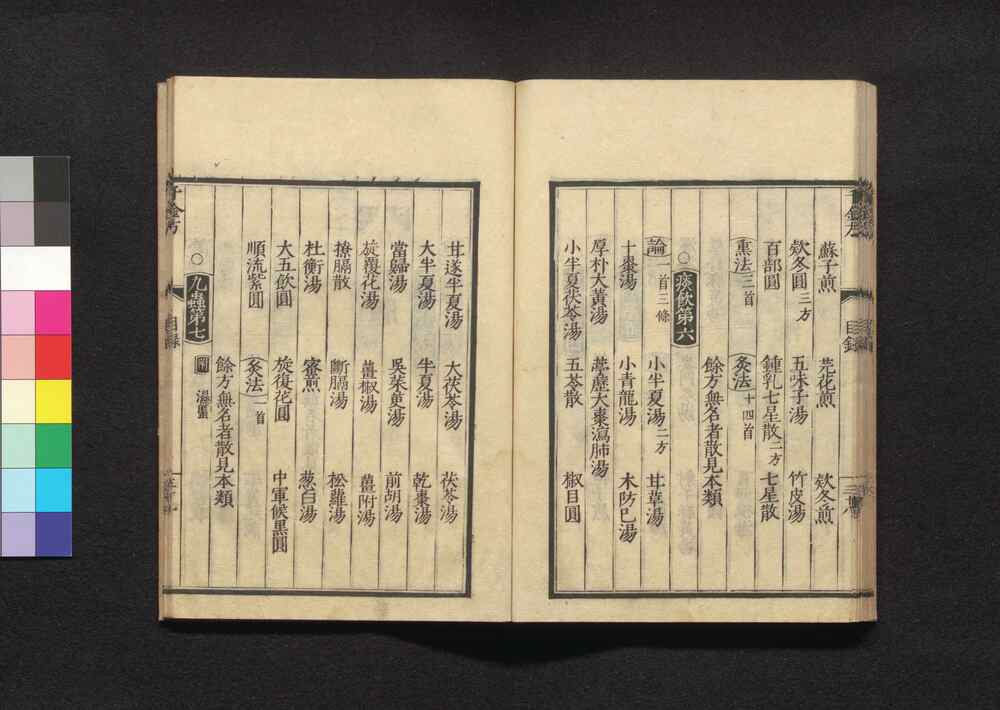 蘇子煎 芫花煎 欵冬煎
欵冬圓三方 五味子湯 竹皮湯
百部圓 鍾乳七星散二方 七星散
熏法三首 灸法十四首
餘方無名者散見本類
○痰飲第六
論一首三條 小半夏湯二方 甘草湯
十棗湯 小青龍湯 木防已湯
厚朴大黃湯 葶藶大棗瀉肺湯
小半夏茯苓湯 五苓散 椒目圓
甘遂半夏湯 大茯苓湯 茯苓湯
大半夏湯 半夏湯 乾棗湯
當歸湯 吳茱萸湯 前胡湯
旋覆花湯 薑椒湯 薑附湯
撩膈散 斷膈湯 松蘿湯
杜衡湯 蜜煎 葱白湯
大五飲圓 旋復花圓 中軍候黑圓
順流紫圓 灸法一首
餘方無名者散見本類
○九蟲第七
千金方
目錄